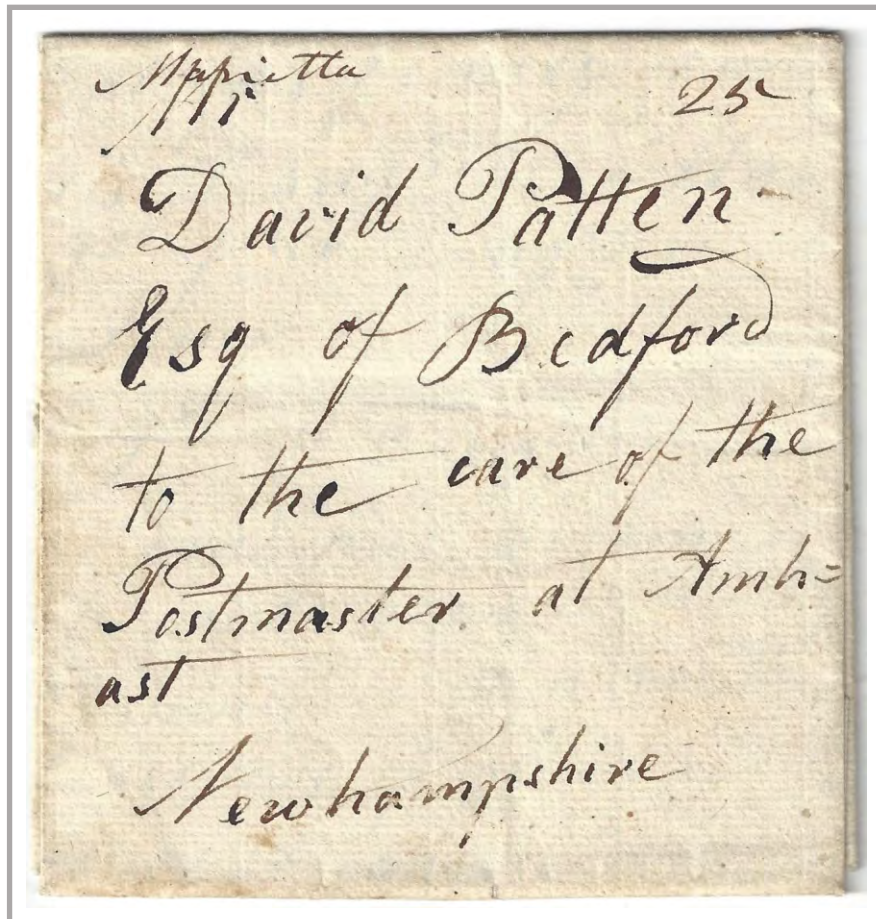 25
David Patten
Esq of Bedford
to the care of the
Postmaster at Amh=
ast
Newhampshire